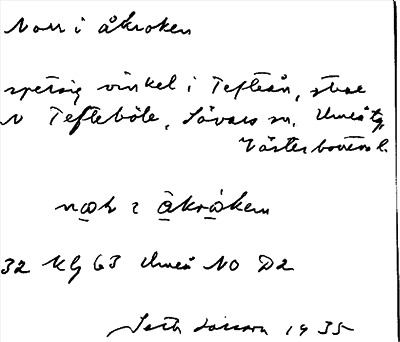 Norr i åkroken
spetsig vinkel i Tefteån, strax
N Tefteböle, Sävars sn, Umeå tg,
Västerbottens l.
i åkråken
32 Kg 63 Umeå NO D2
Seth Larsson 1935